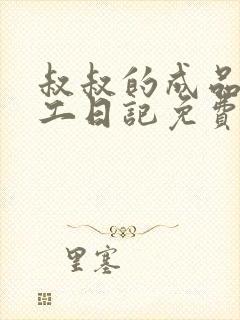 叔叔的成品
工日記免費
里塞